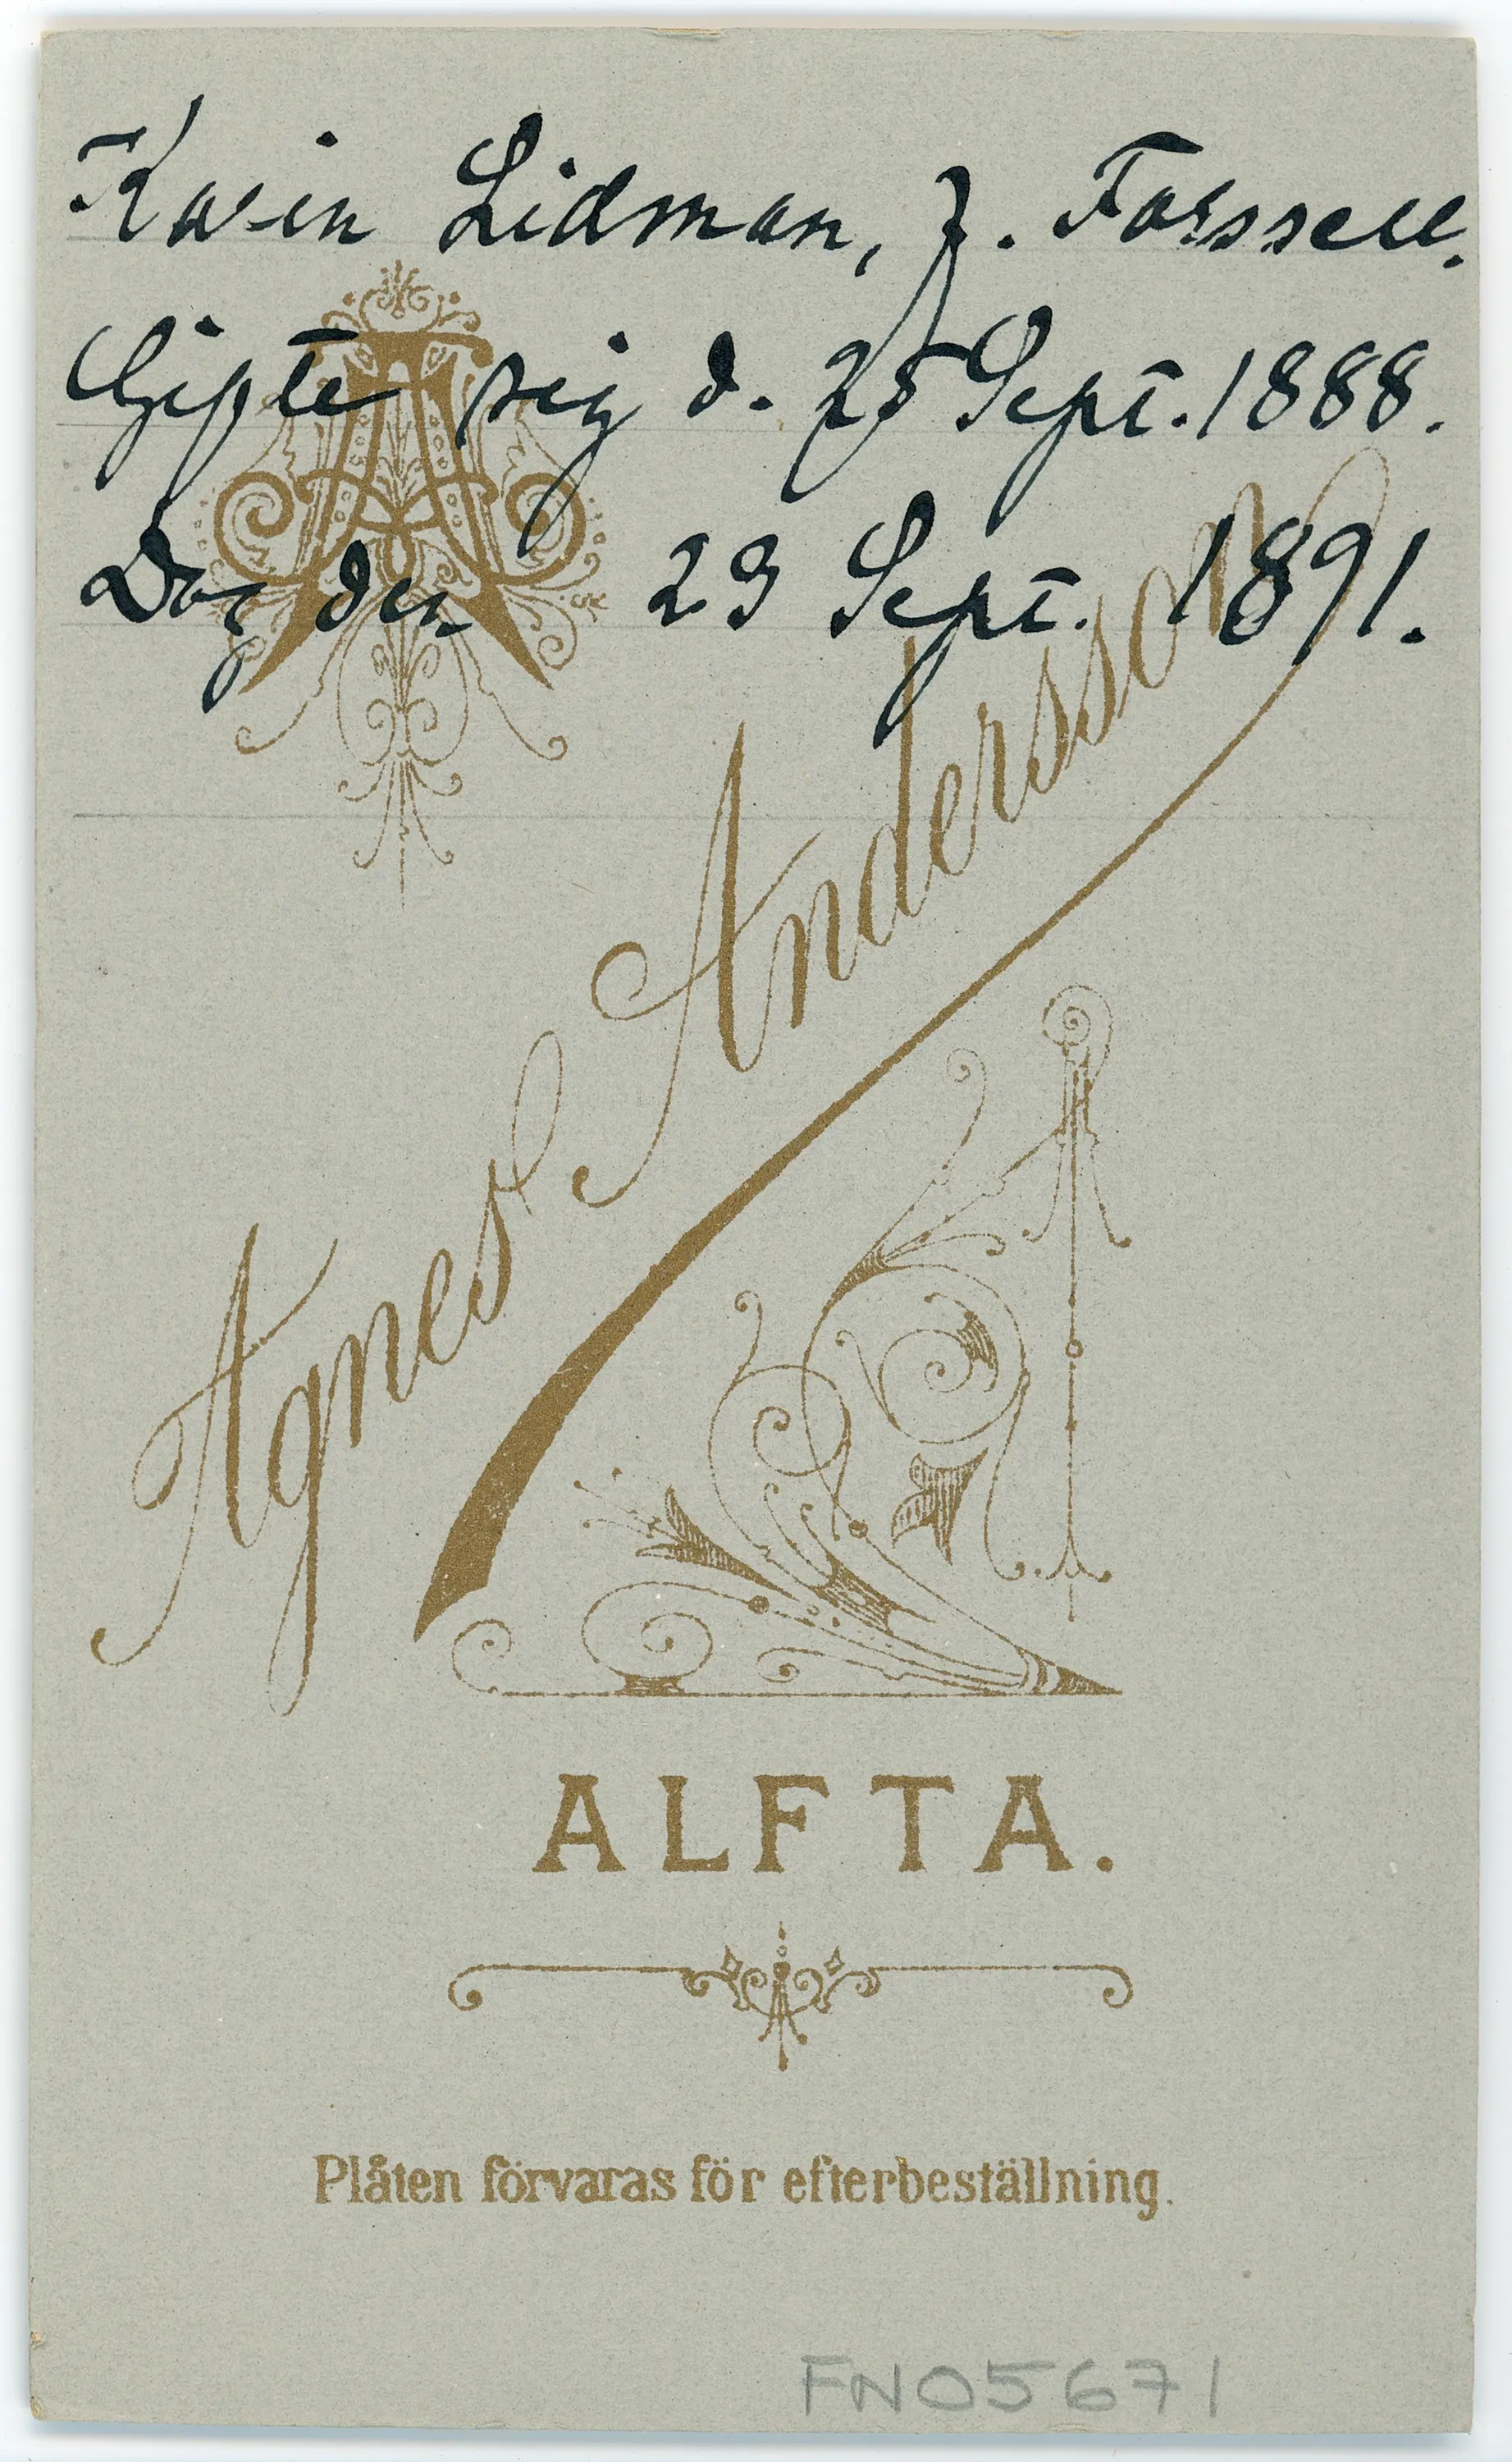 Karin Lidman, f. Forssell.
Gifte sig d. 25 Sept. 1888.
Dog den 23 Sept. 1891.
AA
Agnes Andersson
ALFTA.
Plåten förvaras för efterbeställning.
FN05671